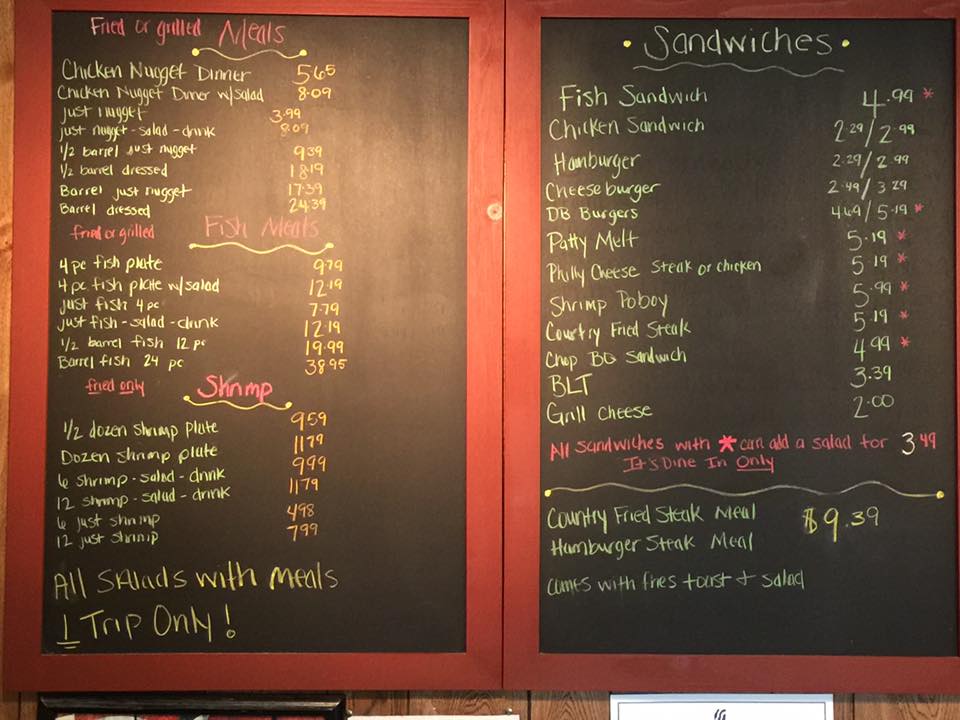 Fried or grilled Meals
Chicken Nugget Dinner 5.65
Chicken Nugget Dinner w/salad 8.09
just nugget 3.99
just nugget - salad - drink 8.09
1/2 barrel just nugget 9.39
1/2 barrel dressed 18.19
Barrel just nugget 17.39
Barrel dressed 24.39
fried or grilled Fish Meals
4 pc fish plate 9.79
4 pc fish plate w/salad 12.19
just fish 4 pc 7.79
just fish - salad - drink 12.19
1/2 barrel fish 12 pc 19.99
Barrel fish 24 pc 38.95
fried only Shrimp
1/2 dozen shrimp plate 9.59
Dozen shrimp plate 11.79
6 shrimp - salad - drink 9.99
12 shrimp - salad - drink 11.79
6 just shrimp 4.98
12 just shrimp 7.99
All Salads with meals
1 Trip Only!
Sandwiches
Fish Sandwich 4.99 *
Chicken Sandwich 2.29/2.99
Hamburger 2.29/2.99
Cheeseburger 2.49/3.29
DB Burgers 4.69/5.19 *
Patty Melt 5.19 *
Philly Cheese Steak or chicken 5.19 *
Shrimp Poboy 5.99 *
Country Fried Steak 5.19 *
Chop BQ Sandwich 4.99 *
BLT 3.39
Grill Cheese 2.00
All sandwiches with * can add a salad for 3.49
It's Dine In Only
Country Fried Steak Meal $9.39
Hamburger Steak Meal
comes with fries toast & salad